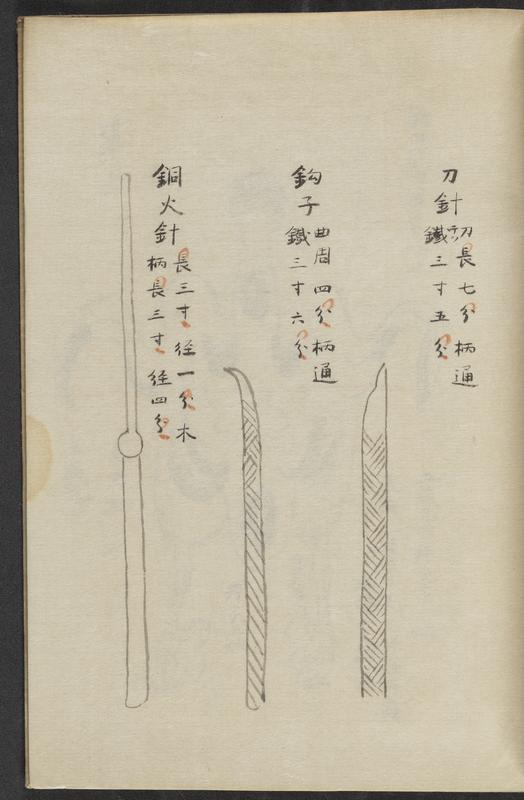 刀針
刃長七分柄通
鐵三寸五分
鈎子
曲周四分柄通
鐵三寸六分
銅火針
長三寸径一分木
柄長三寸径四分